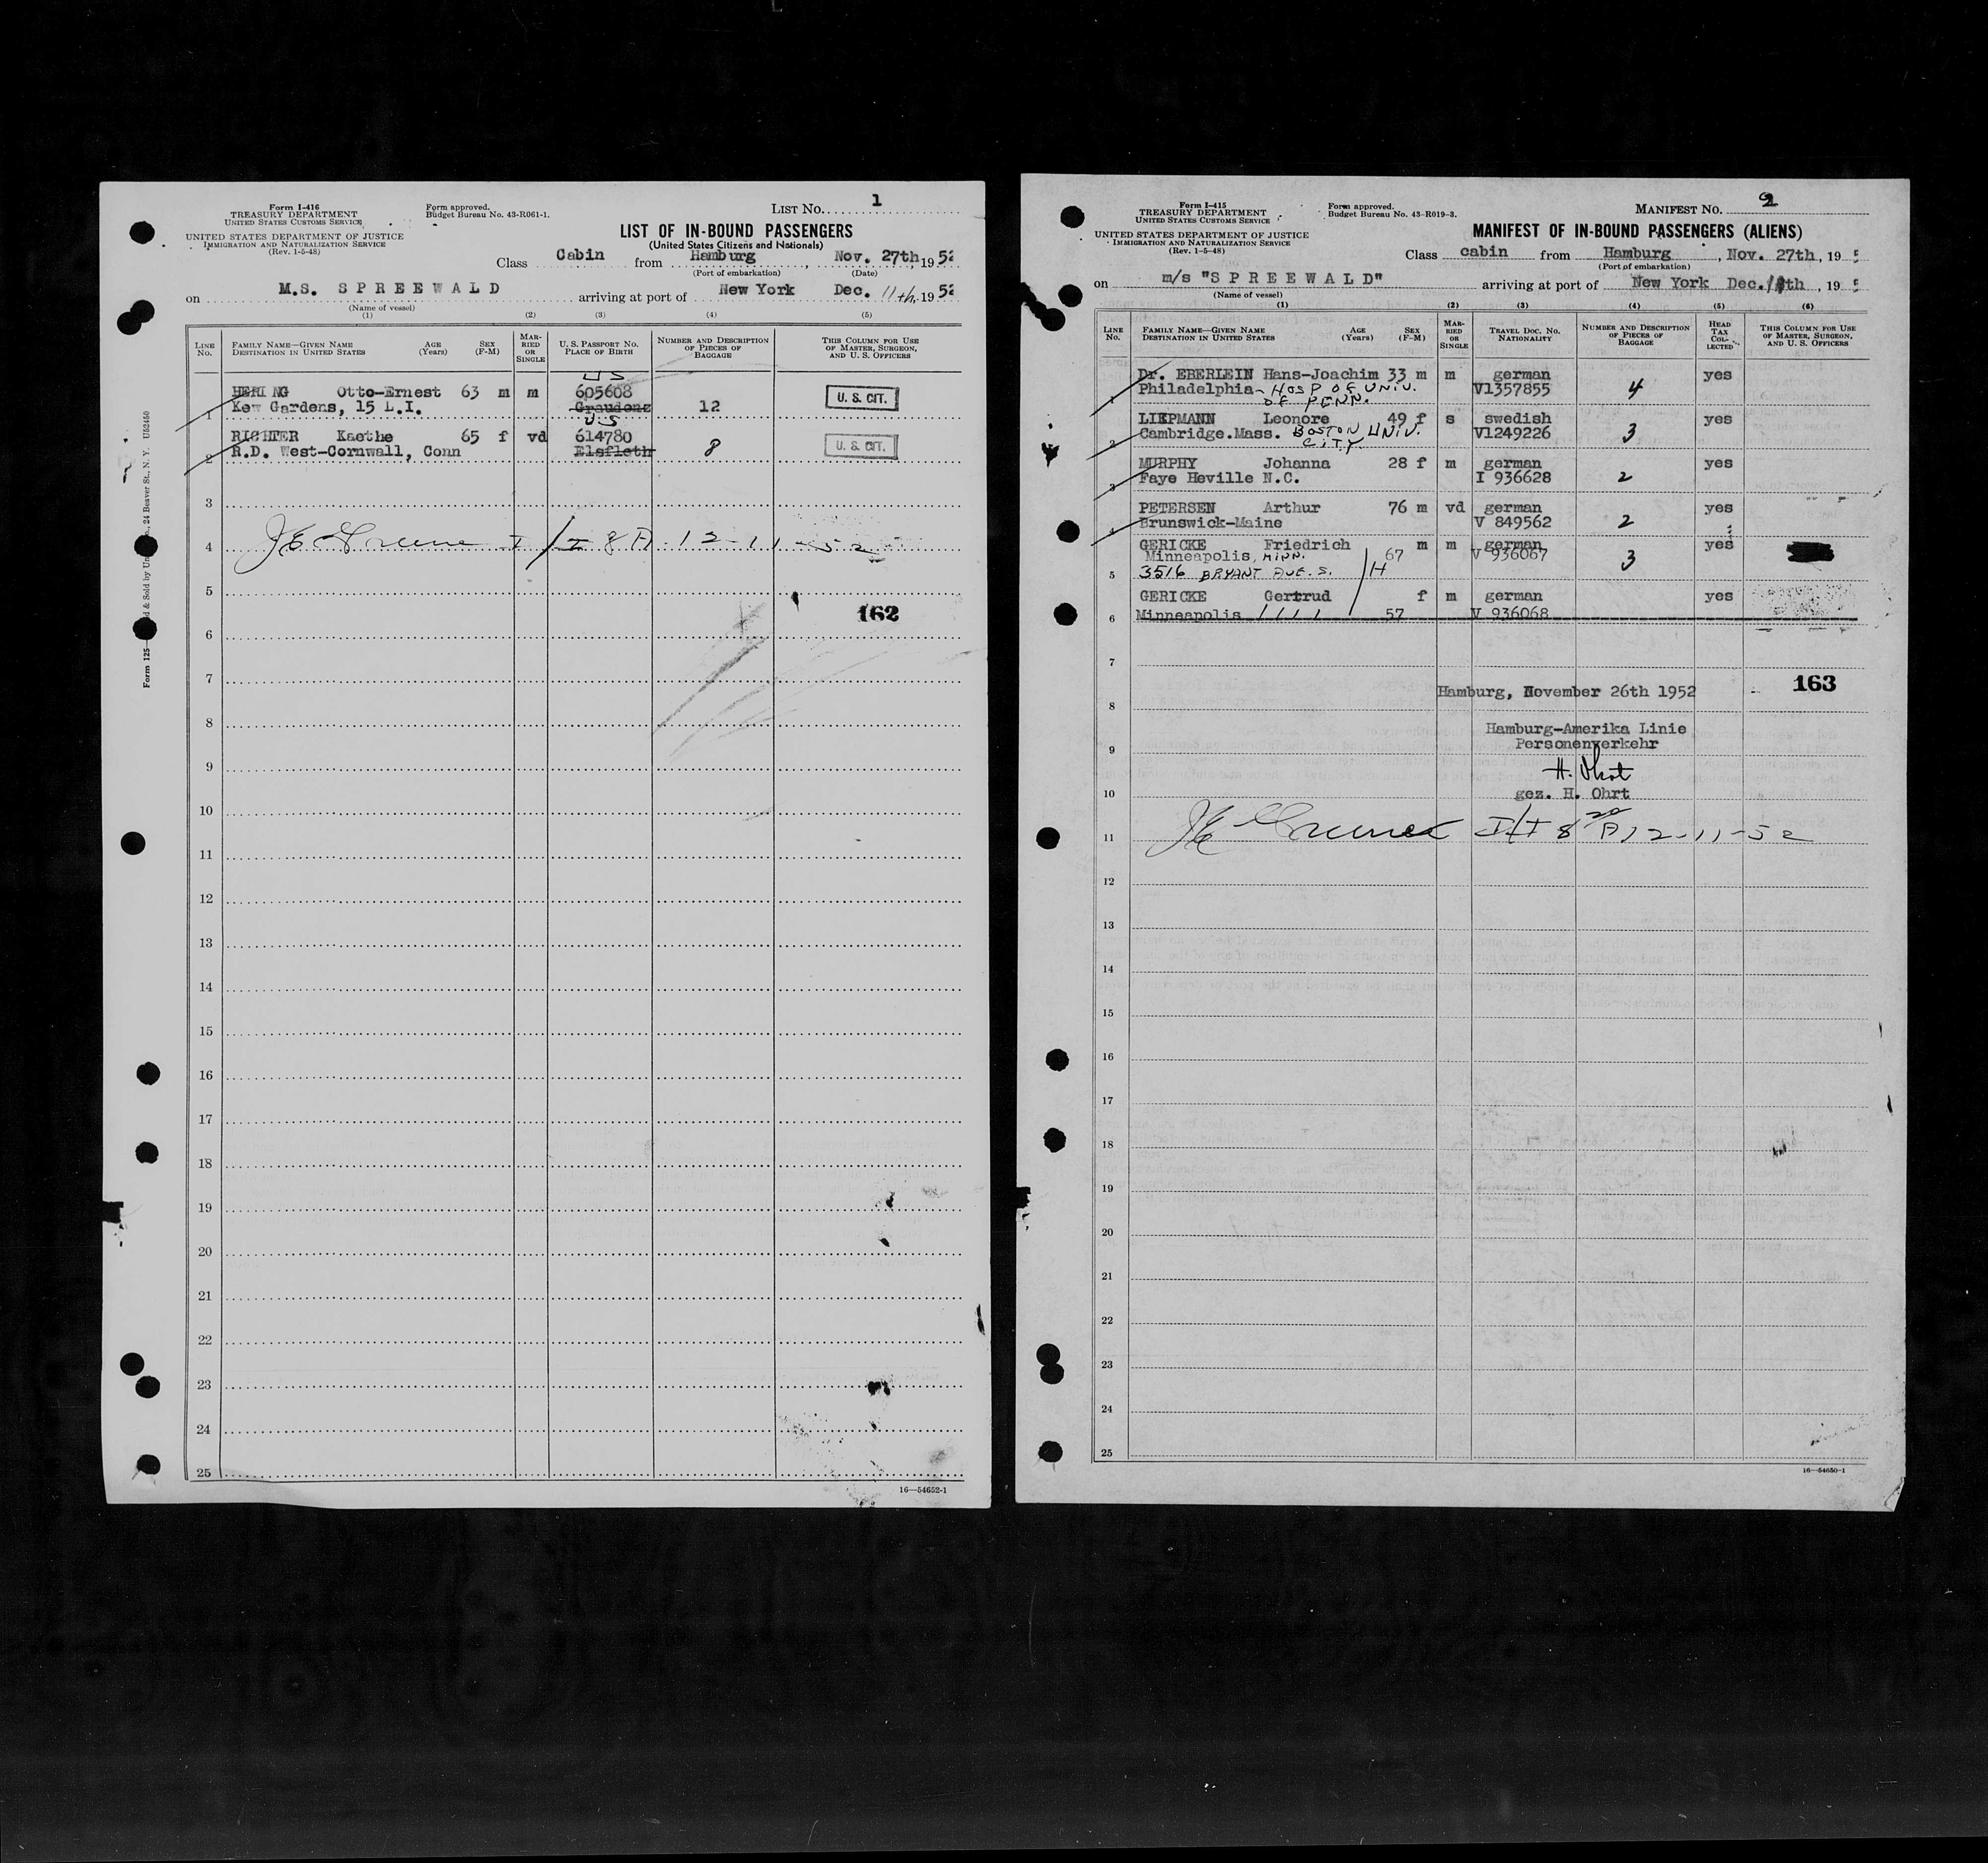 Form I-416
TREASURY DEPARTMENT
UNITED STATES CUSTOMS SERVICE
UNITED STATES DEPARTMENT OF JUSTICE
IMMIGRATION AND NATURALIZATION SERVICE
(Rev. 1-5-48)
Form approved.
Budget Bureau No. 43-R061-1.
LIST NO. 1
LIST OF IN-BOUND PASSENGERS
(United States Citizens and Nationals)
Class Cabin from Hamburg, Nov. 27th, 1952
(Port of embarkation) (Date)
on M.S. SPREEWALD arriving at port of New York Dec. 11th, 1952
(Name of vessel)
(1) (2) (3) (4) (5)
LINE NO.
FAMILY NAME—GIVEN NAME
DESTINATION IN UNITED STATES
AGE (Years)
SEX (F-M)
MARRIED OR SINGLE
U. S. PASSPORT NO.
PLACE OF BIRTH
NUMBER AND DESCRIPTION OF PIECES OF BAGGAGE
THIS COLUMN FOR USE OF MASTER, SURGEON, AND U. S. OFFICERS
US
HERING Otto-Ernest 63 m m 605608 U. S. CIT.
1 Kew Gardens, 15 L.I. Graudenz 12
US
RICHTER Kaethe 65 f vd 614780 U. S. CIT.
2 R.D. West-Cornwall, Conn Elsfleth 8
3
4 JE Greene I/I 8 A 12-11-52
5
162
6
7
8
9
10
11
12
13
14
15
16
17
18
19
20
21
22
23
24
25
16—54652-1
Form I-415
TREASURY DEPARTMENT
UNITED STATES CUSTOMS SERVICE
UNITED STATES DEPARTMENT OF JUSTICE
IMMIGRATION AND NATURALIZATION SERVICE
(Rev. 1-5-48)
Form approved.
Budget Bureau No. 43-R019-3.
MANIFEST NO. 2
MANIFEST OF IN-BOUND PASSENGERS (ALIENS)
Class cabin from Hamburg, Nov. 27th, 195
(Port of embarkation)
on m/s "SPREEWALD" arriving at port of New York Dec. 11th, 195
(Name of vessel)
(1) (2) (3) (4) (5) (6)
LINE NO.
FAMILY NAME—GIVEN NAME
DESTINATION IN UNITED STATES
AGE (Years)
SEX (F-M)
MARRIED OR SINGLE
TRAVEL DOC. NO.
NATIONALITY
NUMBER AND DESCRIPTION OF PIECES OF BAGGAGE
HEAD TAX COLLECTED
THIS COLUMN FOR USE OF MASTER, SURGEON, AND U. S. OFFICERS
Dr. EBERLEIN Hans-Joachim 33 m m german yes
1 Philadelphia- HOSP OF UNIV. OF PENN. V1357855 4
LIEPMANN Leonore 49 f s swedish yes
2 Cambridge.Mass. BOSTON UNIV. CITY V1249226 3
MURPHY Johanna 28 f m german yes
3 Faye Heville N.C. I 936628 2
PETERSEN Arthur 76 m vd german yes
4 Brunswick-Maine V 849562 2
GERICKE Friedrich m m german yes
Minneapolis, MINN. 67 V 936067 3
5 3516 BRYANT AVE. S. H
GERICKE Gertrud f m german yes
6 Minneapolis 57 V 936068
7
Hamburg, November 26th 1952 163
8
Hamburg-Amerika Linie
9 Personenverkehr
H. Ohrt
10 gez. H. Ohrt
11 JE Greene I/I 8 20 A 12-11-52
12
13
14
15
16
17
18
19
20
21
22
23
24
25
16—54650-1